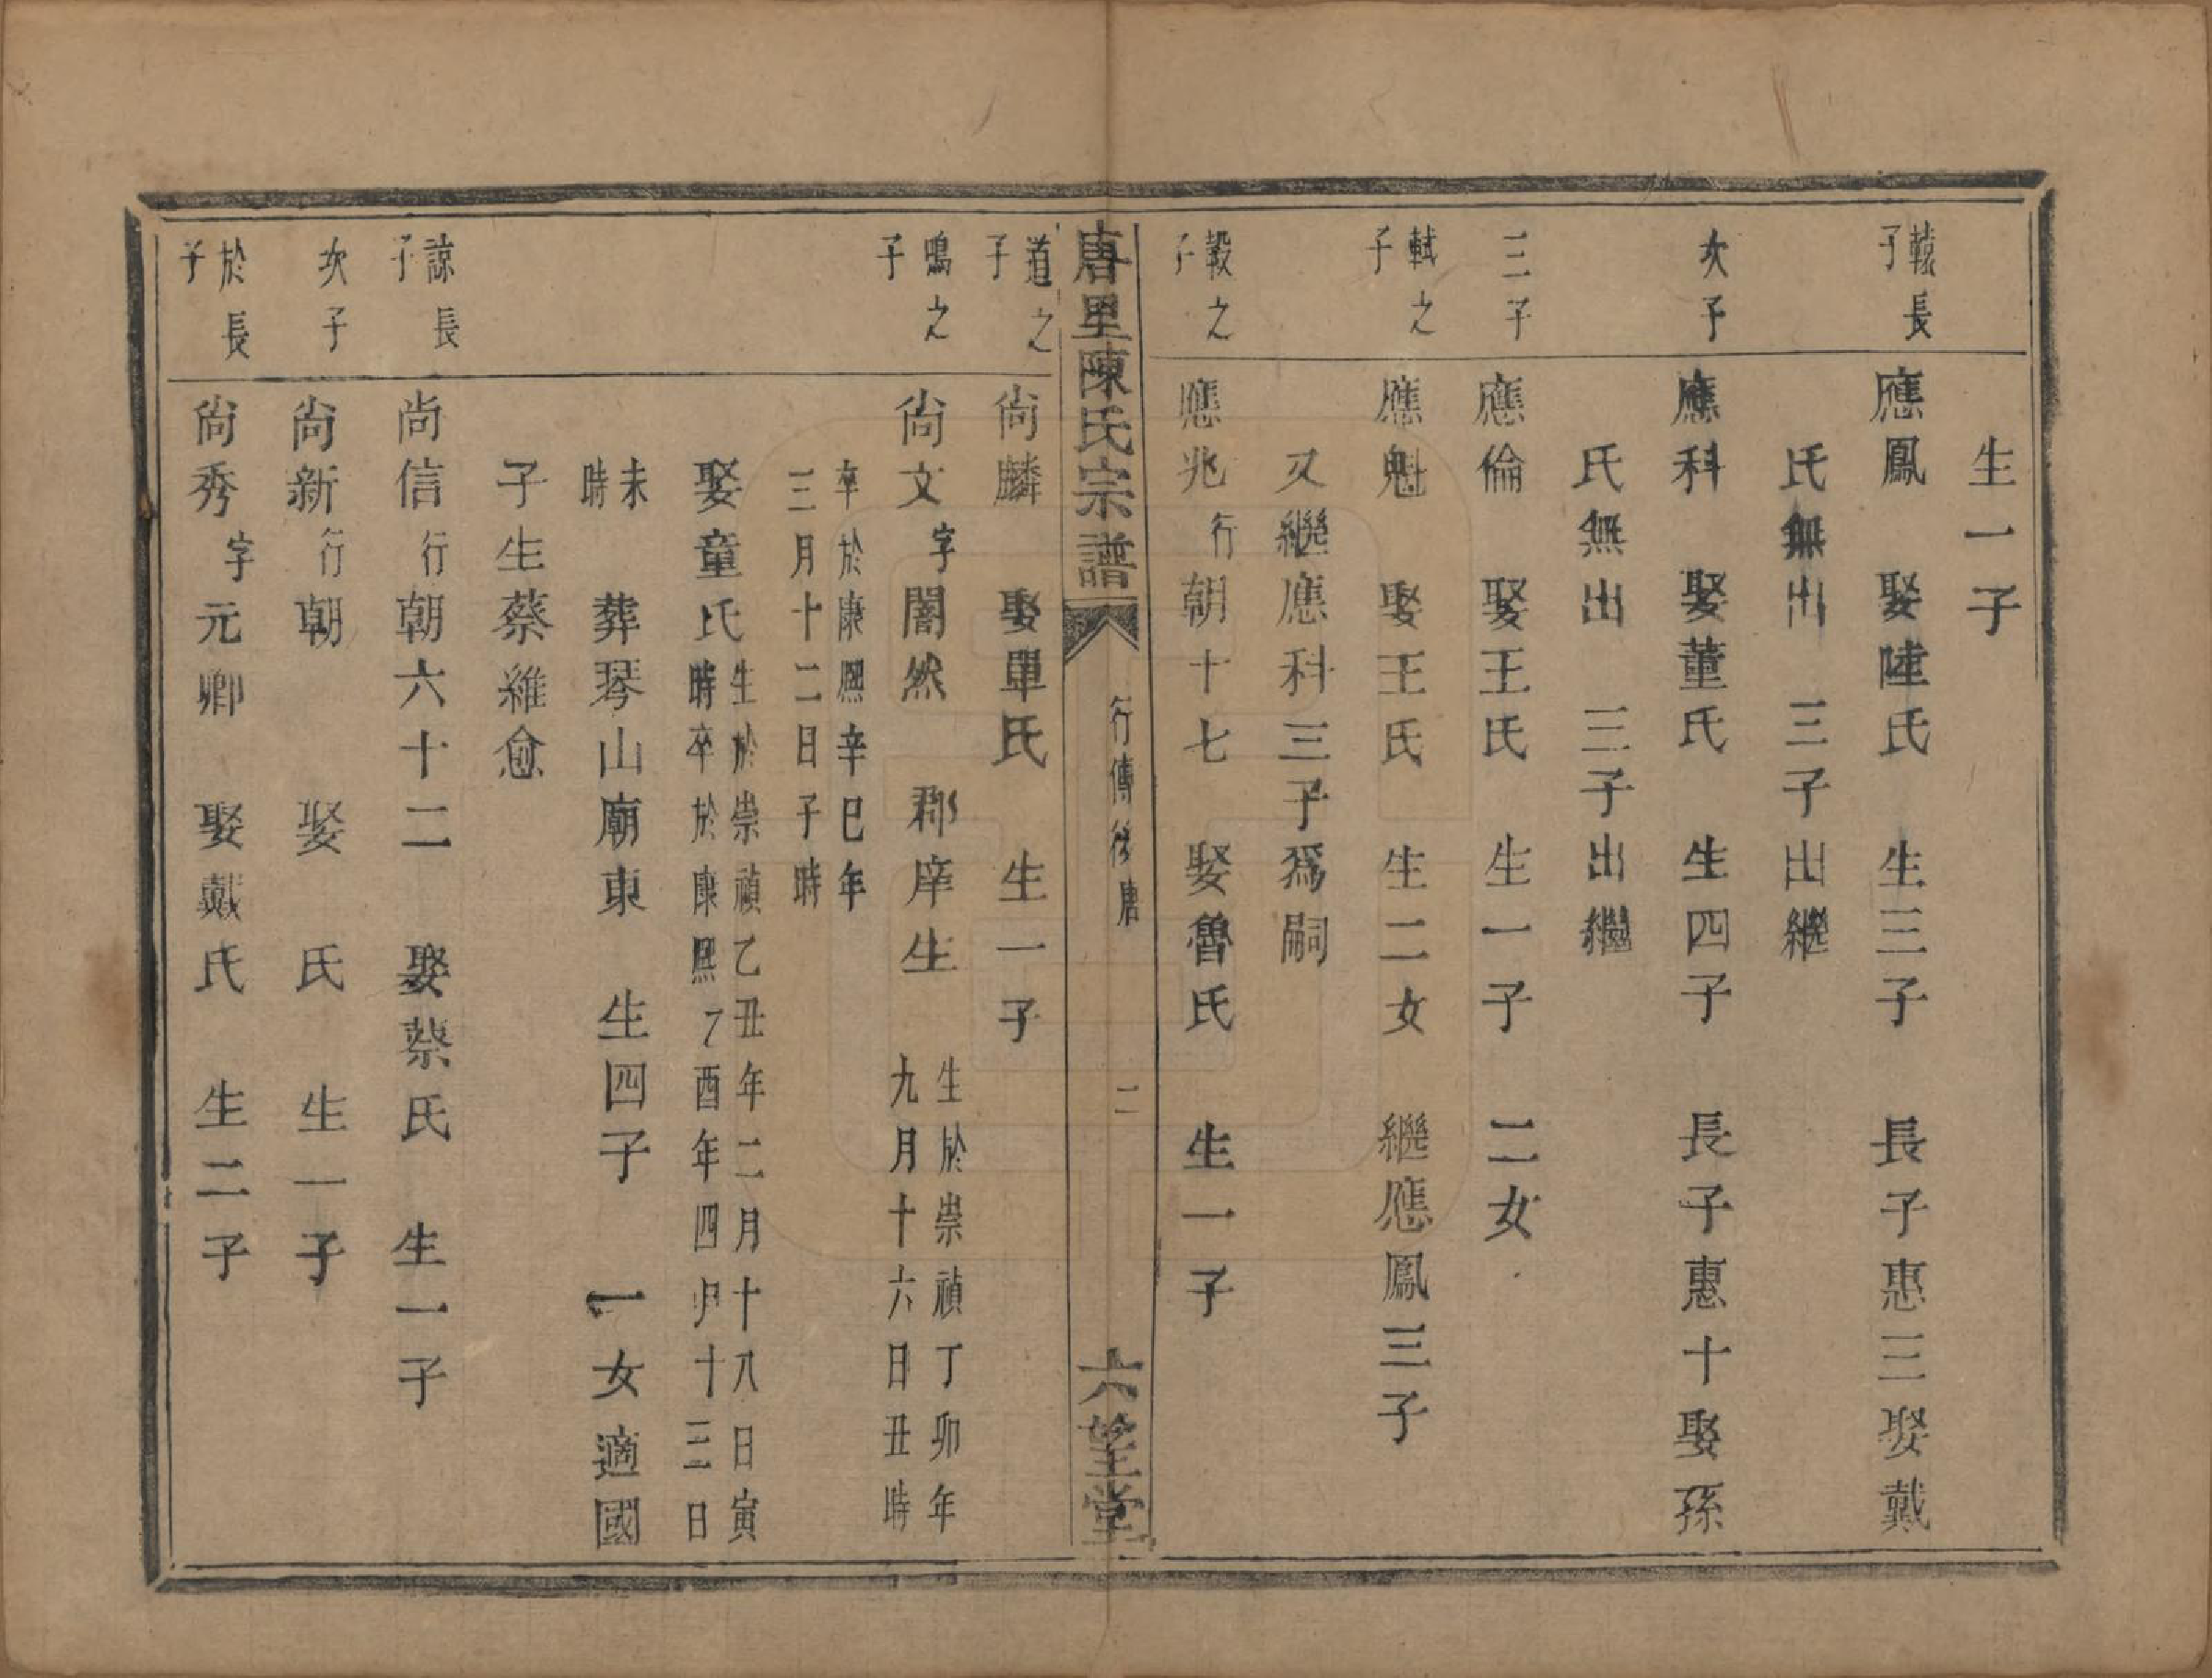 生一子
轅長子　應鳳　娶陸氏　生三子　長子惠三娶戴
氏無出　三子出繼
次子　應科　娶董氏　生四子　長子惠十娶孫
氏無出　三子出繼
三子　應倫　娶王氏　生一子　二女
軾之子　應魁　娶王氏　生二女　繼應鳳三子
又繼應科三子爲嗣
轂之子　應兆行朝十七　娶魯氏　生一子
唐里陳氏宗譜　行傳後唐　二　六望堂
道之子　尚麟　娶單氏　生一子
鳴之子　尚文字闇然　郡庠生　生於崇禎丁卯年九月十六日丑時
卒於康熙辛巳年三月十二日子時
娶童氏　生於崇禎乙丑年二月十八日寅時卒於康熙乙酉年四月十三日
未時　葬琴山廟東　生四子　一女適國
子生蔡維愈
諒長子　尚信行朝六十二　娶蔡氏　生一子
次子　尚新行朝　娶　氏　生一子
於長子　尚秀字元卿　娶戴氏　生二子